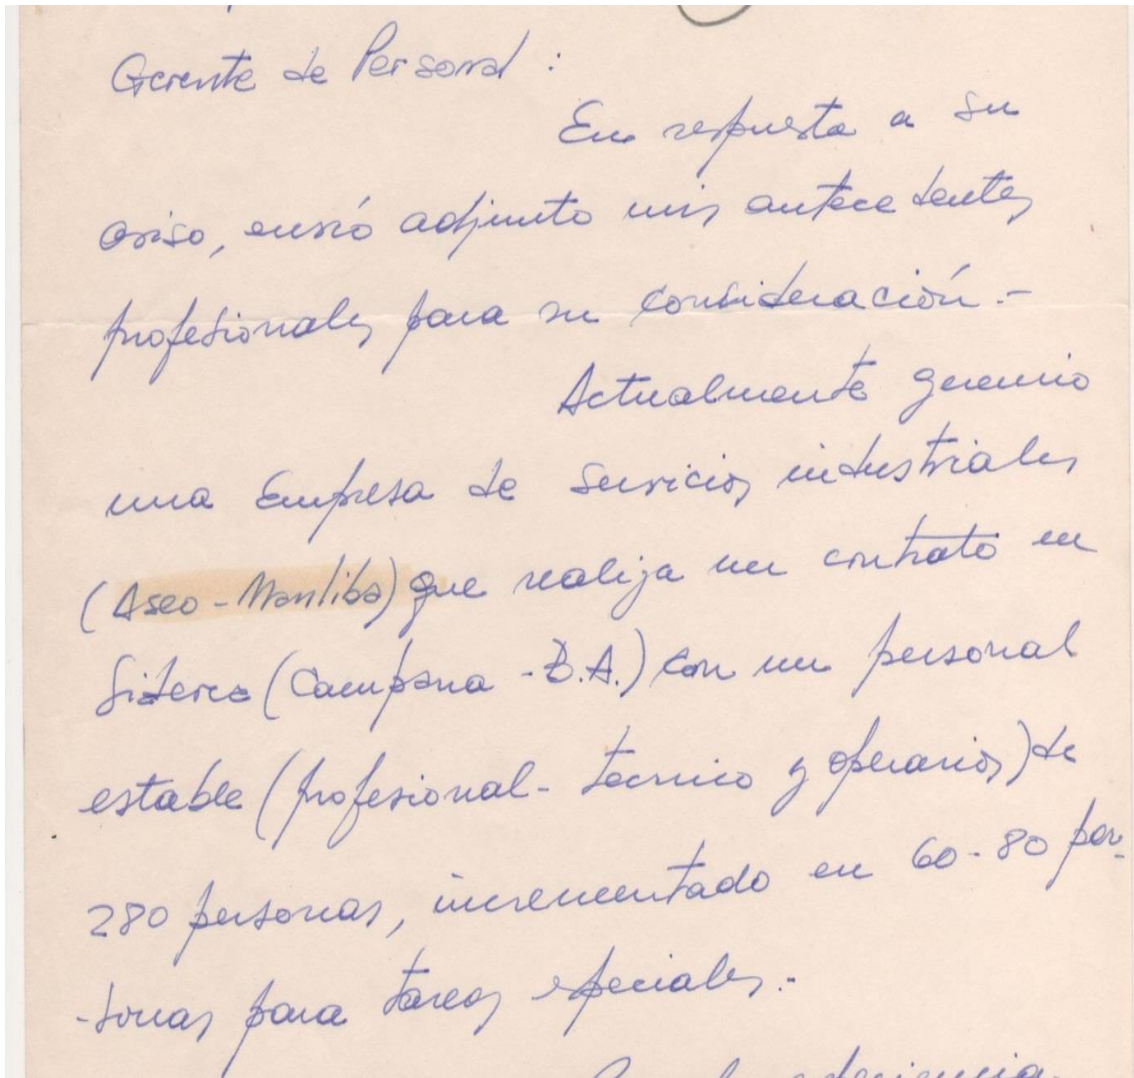 Gerente de Personal :
En respuesta a su
aviso, envió adjunto mis antecedentes
profesionales para su consideración.-
Actualmente gerencio
una Empresa de Servicios industriales
(Aseo-Manliba) que realiza un contrato en
Siderca (Campana - B.A.) con un personal
estable (profesional - tecnico y operarios) de
280 personas, incrementado en 60-80 per-
-sonas para tareas especiales.-